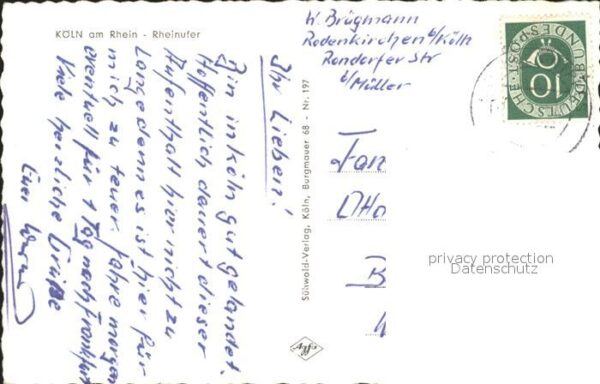 KÖLN am Rhein - Rheinufer
Ihr Lieben!
Bin in Köln gut gelandet.
Hoffentlich dauert dieser
Aufenthalt hier nicht zu
lange denn es ist hier für
mich zu teuer. Fahre morgen
eventuell für 1 Tag nach Frankfurt
Viele herzliche Grüße
Euer
Sünwald-Verlag, Köln, Burgmauer 68 - Nr. 197
Agfa
W. Brügmann
Rodenkirchen b/Köln
Rondorfer Str
b/Müller
DEUTSCHE BUNDESPOST
10
Fam
Otto
B
privacy protection
Datenschutz